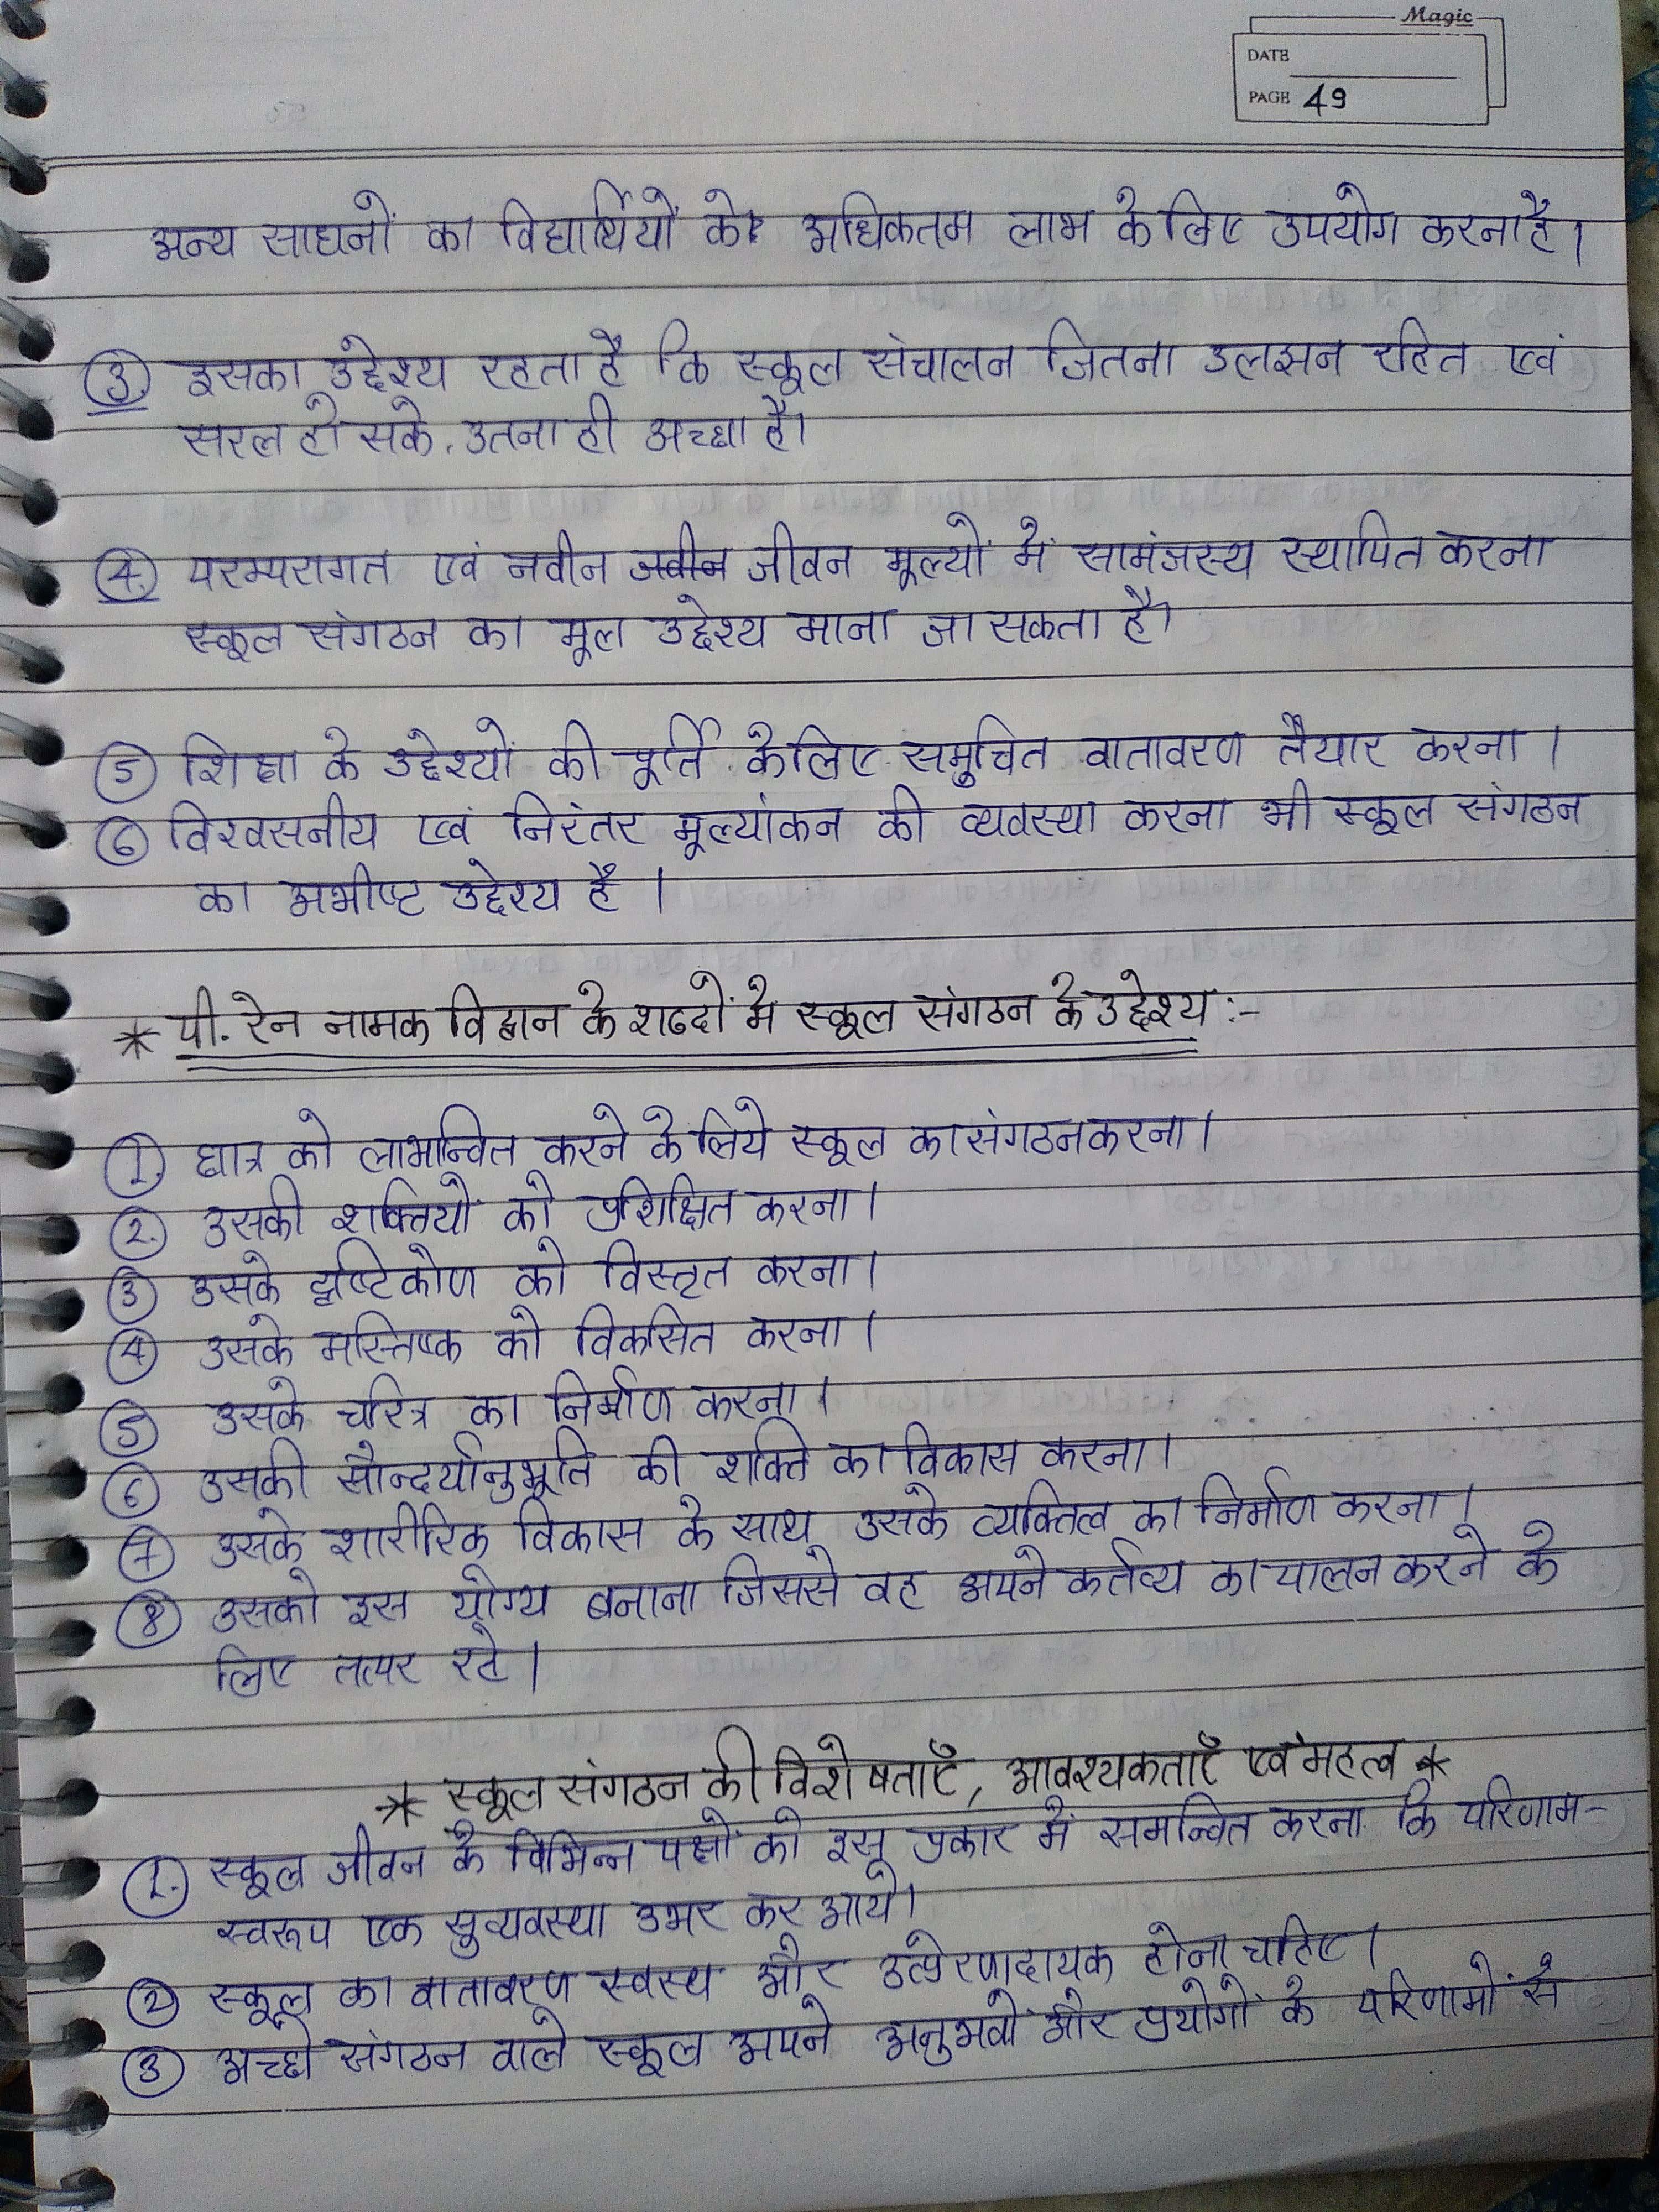 Magic
DATE
PAGE 49
अन्य साधनों का विद्यार्थियों के अधिकतम लाभ के लिए उपयोग करना है।
③ इसका उद्देश्य रहता है कि स्कूल संचालन जितना उलझन रहित एवं
सरल हो सके, उतना ही अच्छा है।
④ परम्परागत एवं नवीन नवीन जीवन मूल्यों में सामंजस्य स्थापित करना
स्कूल संगठन का मूल उद्देश्य माना जा सकता है।
⑤ शिक्षा के उद्देश्यों की पूर्ति के लिए समुचित वातावरण तैयार करना।
⑥ विश्वसनीय एवं निरंतर मूल्यांकन की व्यवस्था करना भी स्कूल संगठन
का अभीष्ट उद्देश्य है।
* पी. रेन नामक विद्वान के शब्दों में स्कूल संगठन के उद्देश्य :-
① छात्र को लाभान्वित करने के लिये स्कूल का संगठन करना।
② उसकी शक्तियों को प्रशिक्षित करना।
③ उसके दृष्टिकोण को विस्तृत करना।
④ उसके मस्तिष्क को विकसित करना।
⑤ उसके चरित्र का निर्माण करना।
⑥ उसकी सौन्दर्यानुभूति की शक्ति का विकास करना।
⑦ उसके शारीरिक विकास के साथ उसके व्यक्तित्व का निर्माण करना।
⑧ उसको इस योग्य बनाना जिससे वह अपने कर्तव्य का पालन करने के
लिए तत्पर रहे।
* स्कूल संगठन की विशेषताएँ, आवश्यकताएँ एवं महत्व *
① स्कूल जीवन के विभिन्न पक्षों को इस प्रकार में समन्वित करना कि परिणाम-
स्वरूप एक सुव्यवस्था उभर कर आये।
② स्कूल का वातावरण स्वस्थ और उत्प्रेरणादायक होना चाहिए।
③ अच्छे संगठन वाले स्कूल अपने अनुभवों और प्रयोगों के परिणामों से